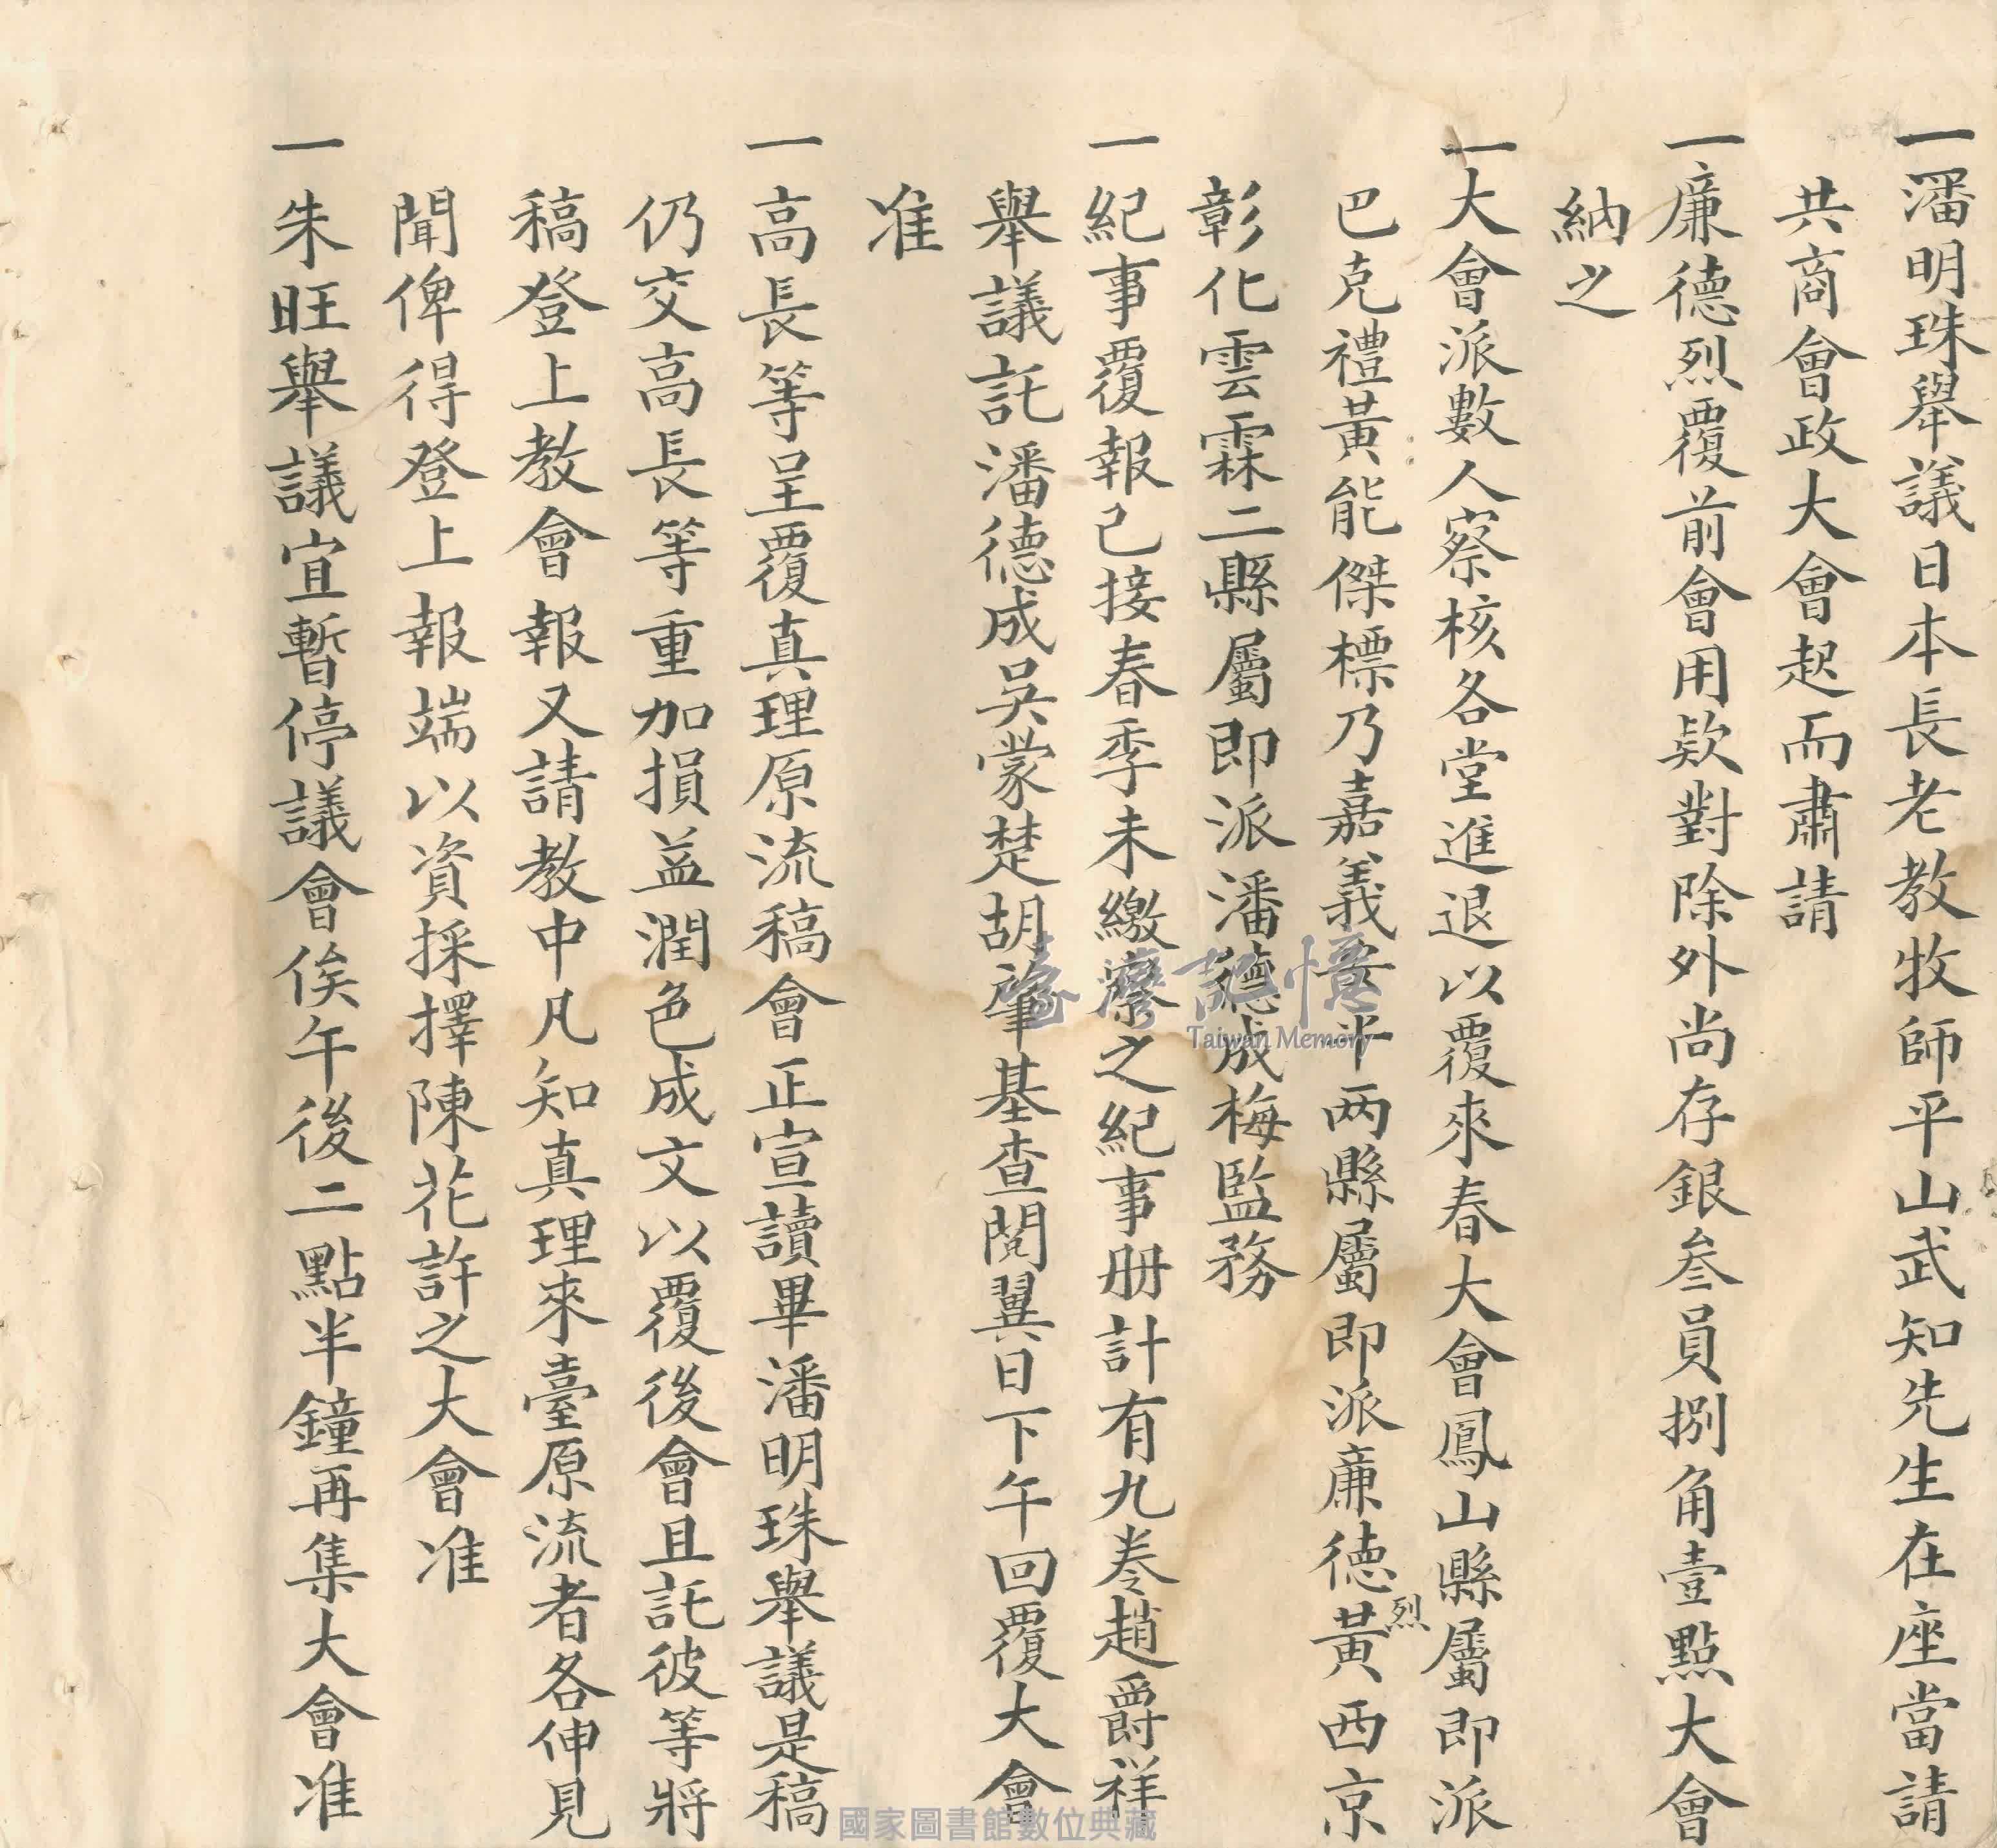 一潘明珠舉議日本長老教牧師平山武知先生在座當請
共商會政大會起而肅請
一廉德烈覆前會用欵對除外尚存銀叁員捌角壹點大會
納之
一大會派數人察核各堂進退以覆來春大會鳳山縣屬即派
巴克禮黃能傑標乃嘉義安平两縣屬即派廉德烈黃西京
彰化雲霖二縣屬即派潘德成梅監務
一紀事覆報已接春季未繳察之紀事册計有九卷趙爵祥
舉議託潘德成吳蒙楚胡肇基查閱翼日下午回覆大會
准
一高長等呈覆真理原流稿會正宣讀畢潘明珠舉議是稿
仍交高長等重加損益潤色成文以覆後會且託彼等將
稿登上教會報又請教中凡知真理來臺原流者各伸見
聞俾得登上報端以資採擇陳花許之大會准
一朱旺舉議宜暫停議會俟午後二點半鐘再集大會准
臺灣記憶
Taiwan Memory
國家圖書館數位典藏